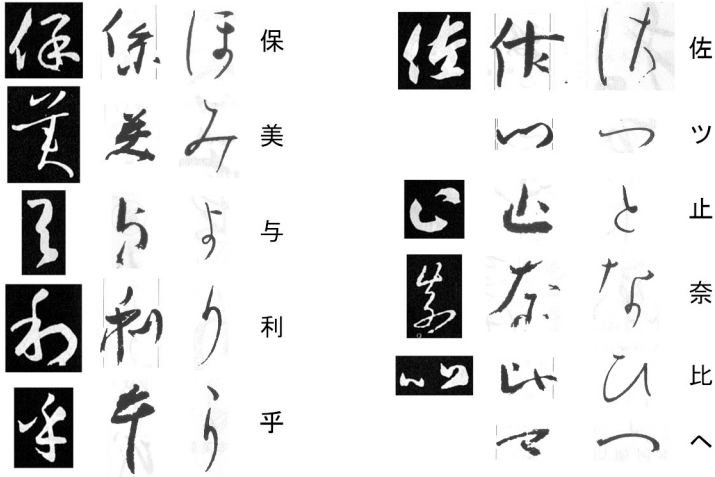 保 保 ほ 保
美 美 み 美
与 与 よ 与
利 利 り 利
乎 乎 乎
佐 佐 佐
つ ツ
止 止 と 止
奈 奈 な 奈
比 比 ひ 比
へ ヘ